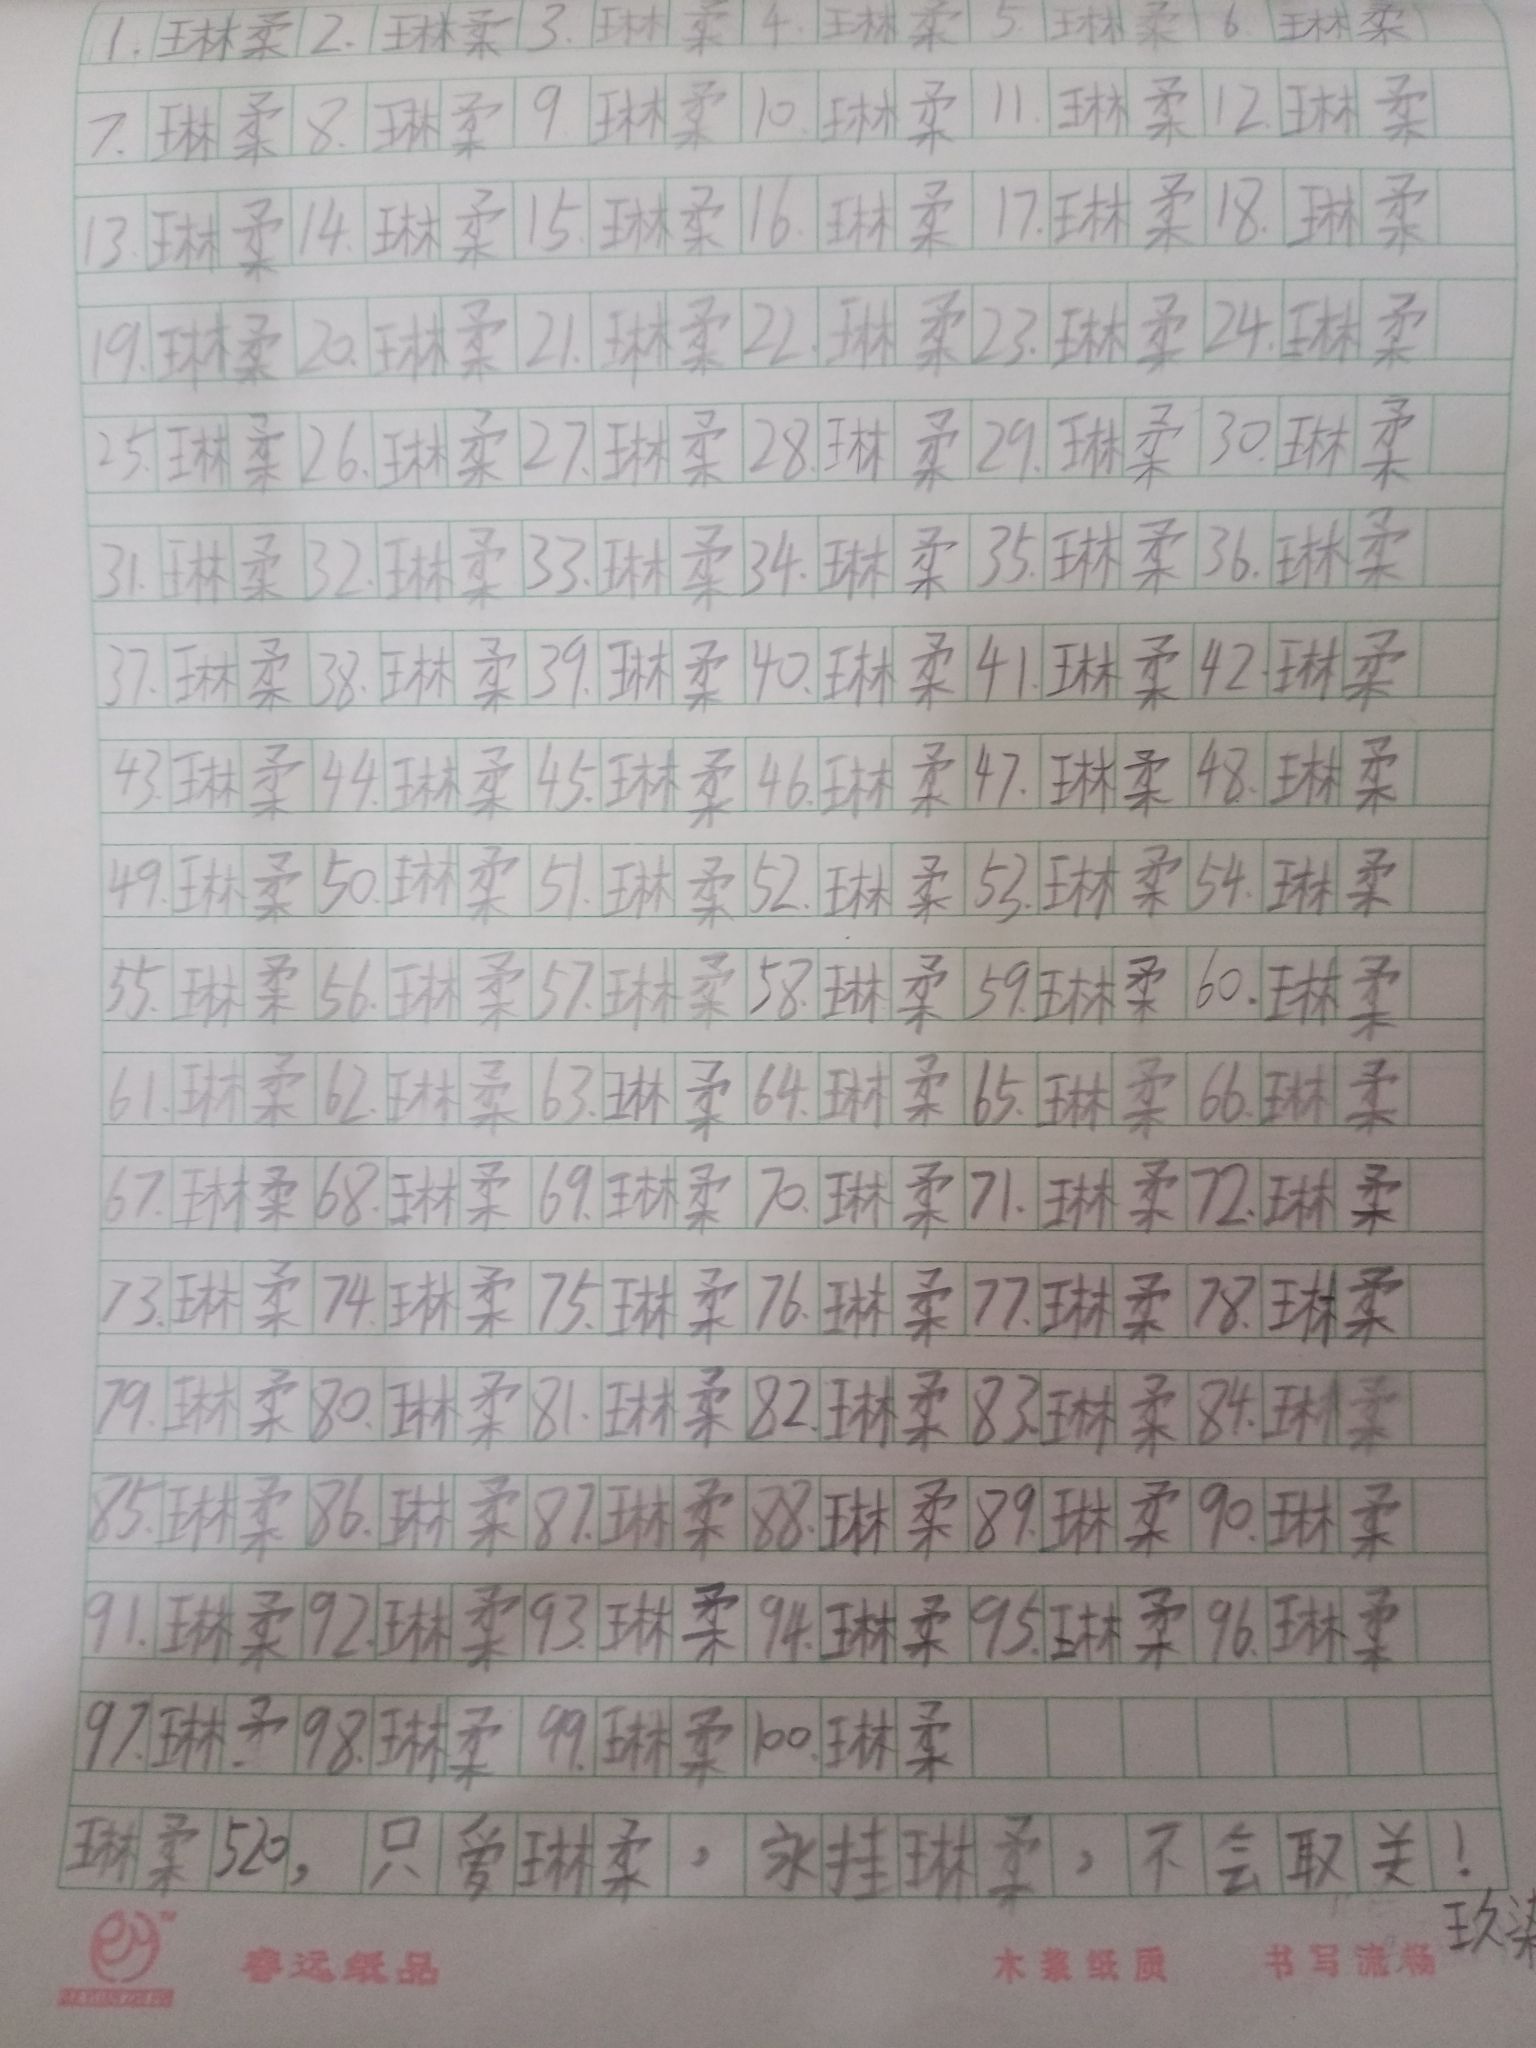 1. 琳柔 2. 琳柔 3. 琳柔 4. 琳柔 5. 琳柔 6. 琳柔
7. 琳柔 8. 琳柔 9. 琳柔 10. 琳柔 11. 琳柔 12. 琳柔
13. 琳柔 14. 琳柔 15. 琳柔 16. 琳柔 17. 琳柔 18. 琳柔
19. 琳柔 20. 琳柔 21. 琳柔 22. 琳柔 23. 琳柔 24. 琳柔
25. 琳柔 26. 琳柔 27. 琳柔 28. 琳柔 29. 琳柔 30. 琳柔
31. 琳柔 32. 琳柔 33. 琳柔 34. 琳柔 35. 琳柔 36. 琳柔
37. 琳柔 38. 琳柔 39. 琳柔 40. 琳柔 41. 琳柔 42. 琳柔
43. 琳柔 44. 琳柔 45. 琳柔 46. 琳柔 47. 琳柔 48. 琳柔
49. 琳柔 50. 琳柔 51. 琳柔 52. 琳柔 53. 琳柔 54. 琳柔
55. 琳柔 56. 琳柔 57. 琳柔 58. 琳柔 59. 琳柔 60. 琳柔
61. 琳柔 62. 琳柔 63. 琳柔 64. 琳柔 65. 琳柔 66. 琳柔
67. 琳柔 68. 琳柔 69. 琳柔 70. 琳柔 71. 琳柔 72. 琳柔
73. 琳柔 74. 琳柔 75. 琳柔 76. 琳柔 77. 琳柔 78. 琳柔
79. 琳柔 80. 琳柔 81. 琳柔 82. 琳柔 83. 琳柔 84. 琳柔
85. 琳柔 86. 琳柔 87. 琳柔 88. 琳柔 89. 琳柔 90. 琳柔
91. 琳柔 92. 琳柔 93. 琳柔 94. 琳柔 95. 琳柔 96. 琳柔
97. 琳柔 98. 琳柔 99. 琳柔 100. 琳柔
琳柔520，只爱琳柔，永挂琳柔，不会取关！
玖染
春远纸品 木浆纸质 书写流畅